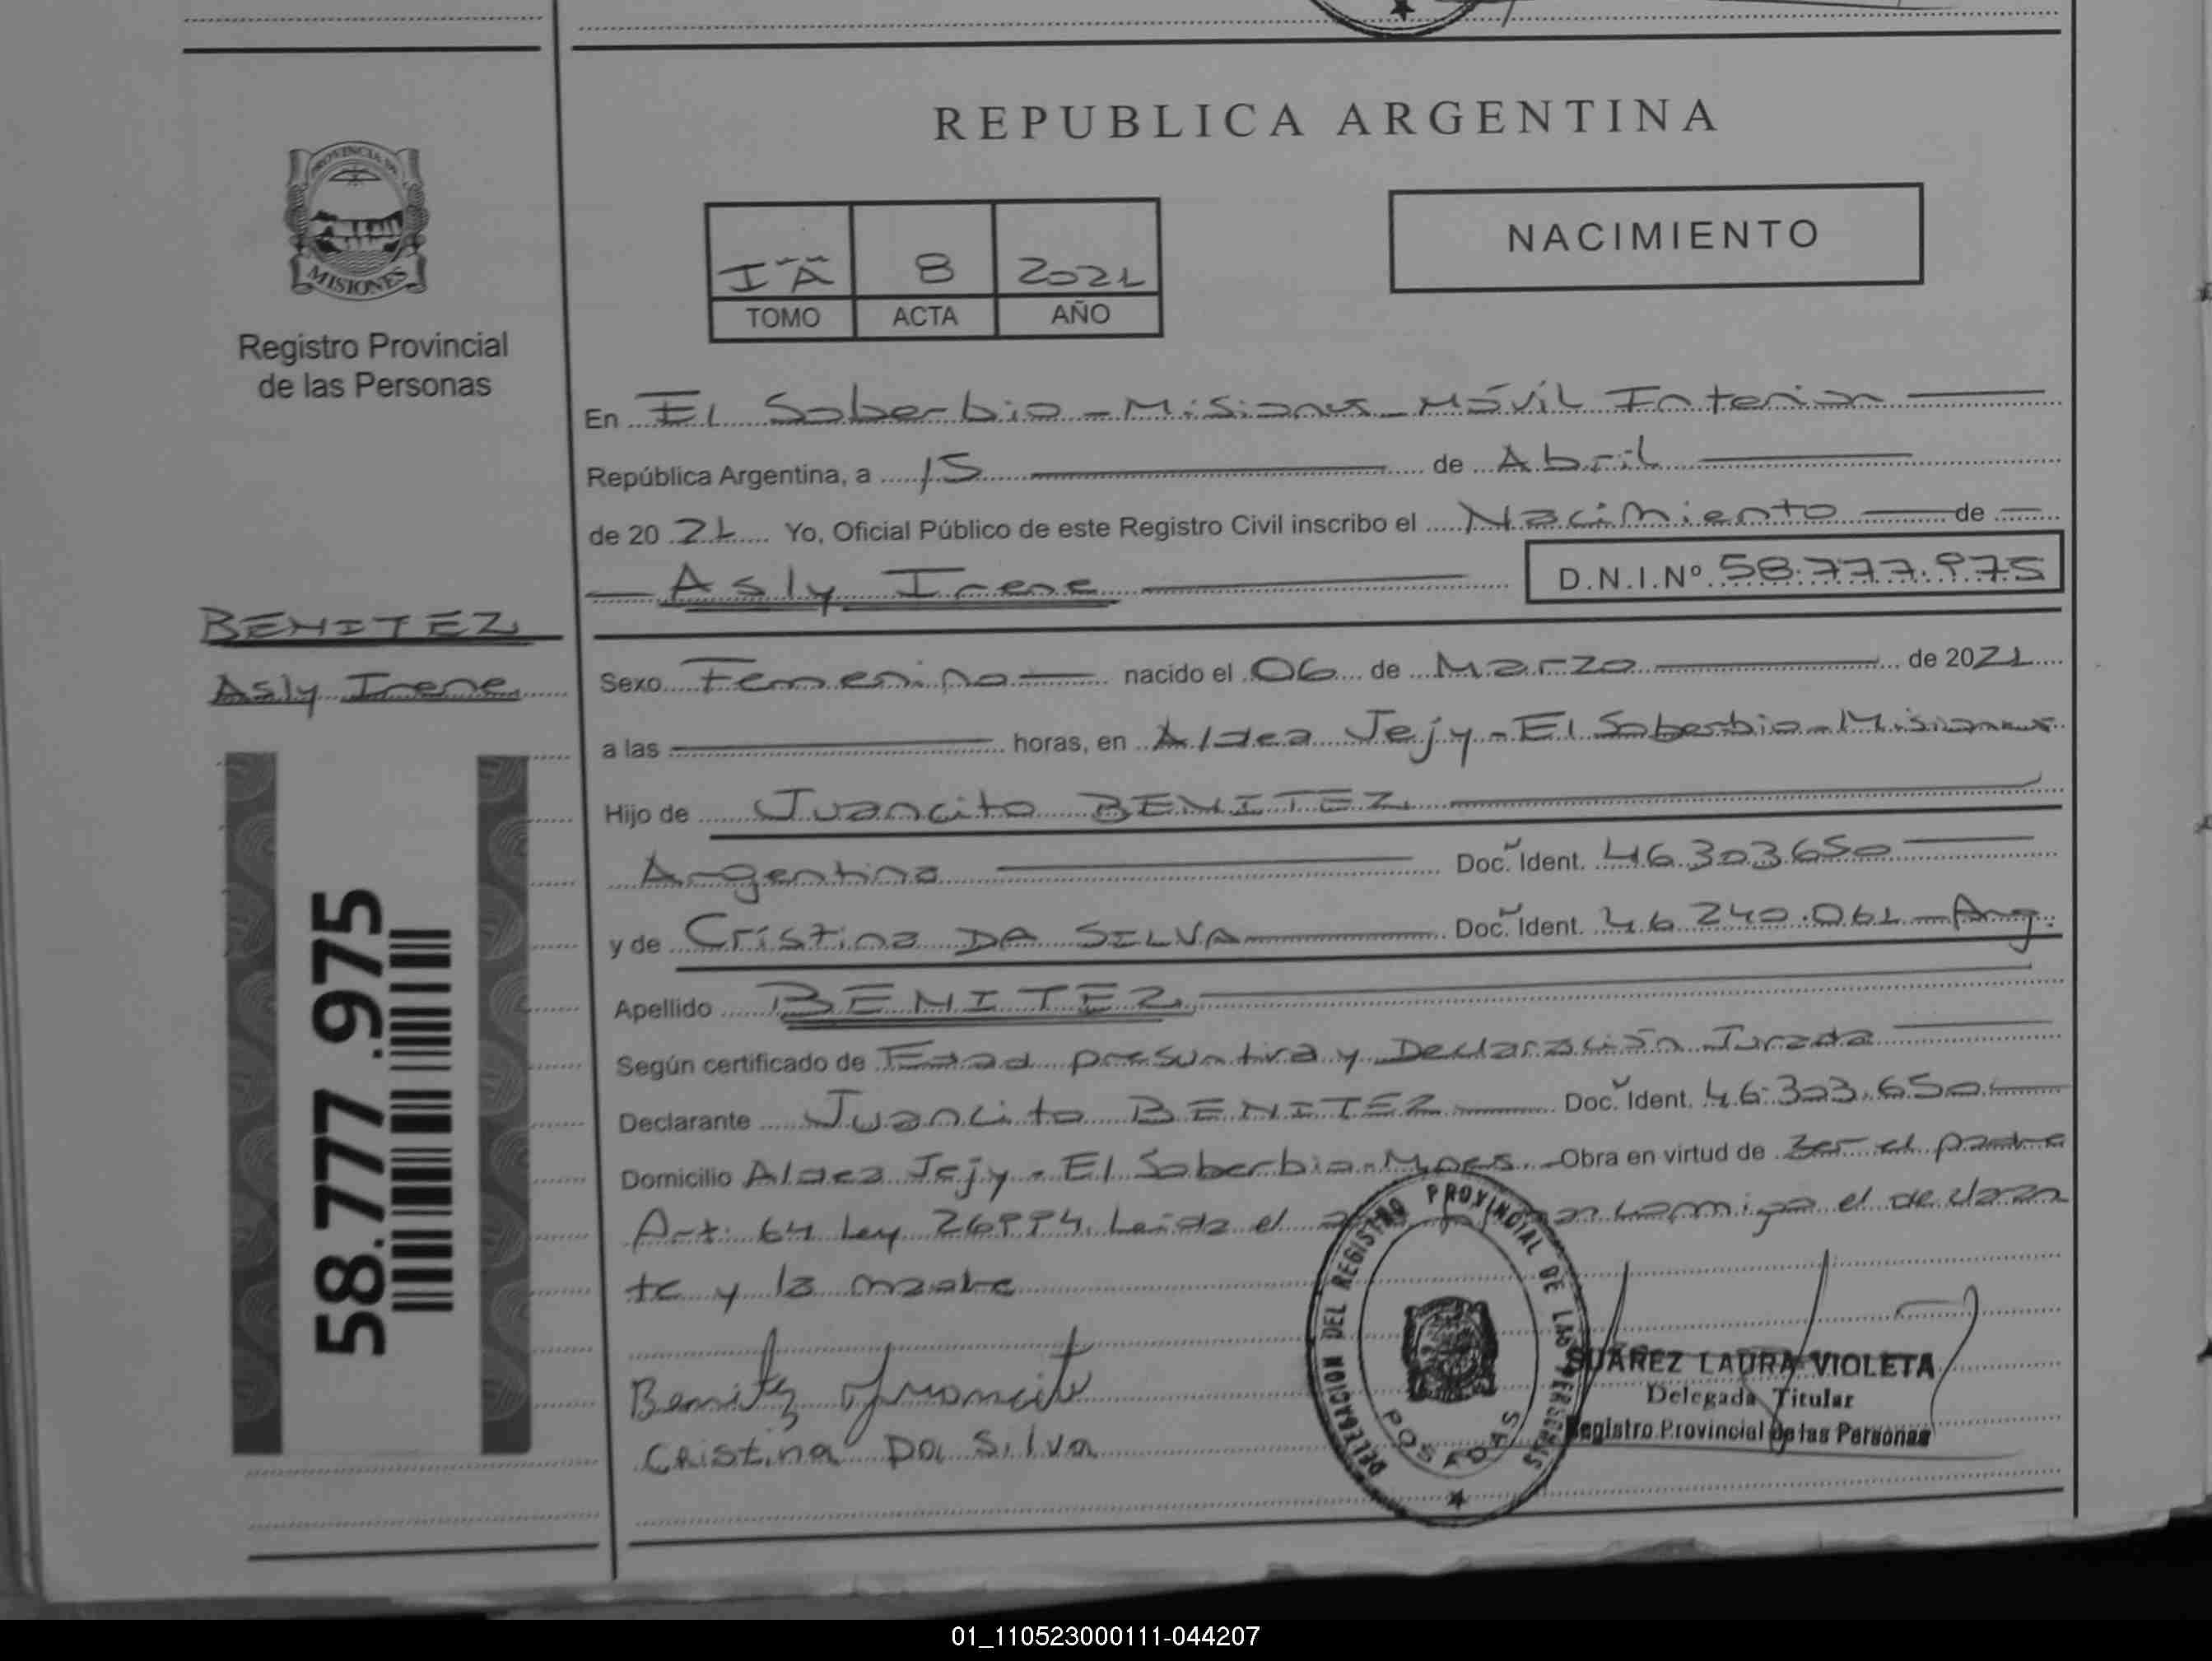 REPUBLICA ARGENTINA
PROVINCIA DE
MISIONES
Registro Provincial
de las Personas
IªA 8 2021
TOMO ACTA AÑO
NACIMIENTO
En El Soberbio - Misiones - Móvil Interior
República Argentina, a 15 de Abril
de 2021 Yo, Oficial Público de este Registro Civil inscribo el Nacimiento de
Asly Irene D.N.I.Nº 58.777.975
BENITEZ
Asly Irene
58.777.975
Sexo Femenino nacido el 06 de Marzo de 2021
a las horas, en Aldea Jejy - El Soberbio - Misiones
Hijo de Juancito BENITEZ
Argentino Doc. Ident. 46.303.650
y de Cristina DA SILVA Doc. Ident. 46.240.061 - Arg.
Apellido BENITEZ
Según certificado de Edad presuntiva y Declaración Jurada
Declarante Juancito BENITEZ Doc. Ident. 46.303.650
Domicilio Aldea Jejy - El Soberbio - Mnes. Obra en virtud de ser el padre
Art. 64 Ley 26994. Leída el conmigo el declaran
te y la madre
Benitez Juancito
Cristina Da Silva
DELEGACION DEL REGISTRO PROVINCIAL DE LAS PERSONAS
POSADAS
SUAREZ LAURA VIOLETA
Delegada Titular
Registro Provincial de las Personas
01_110523000111-044207